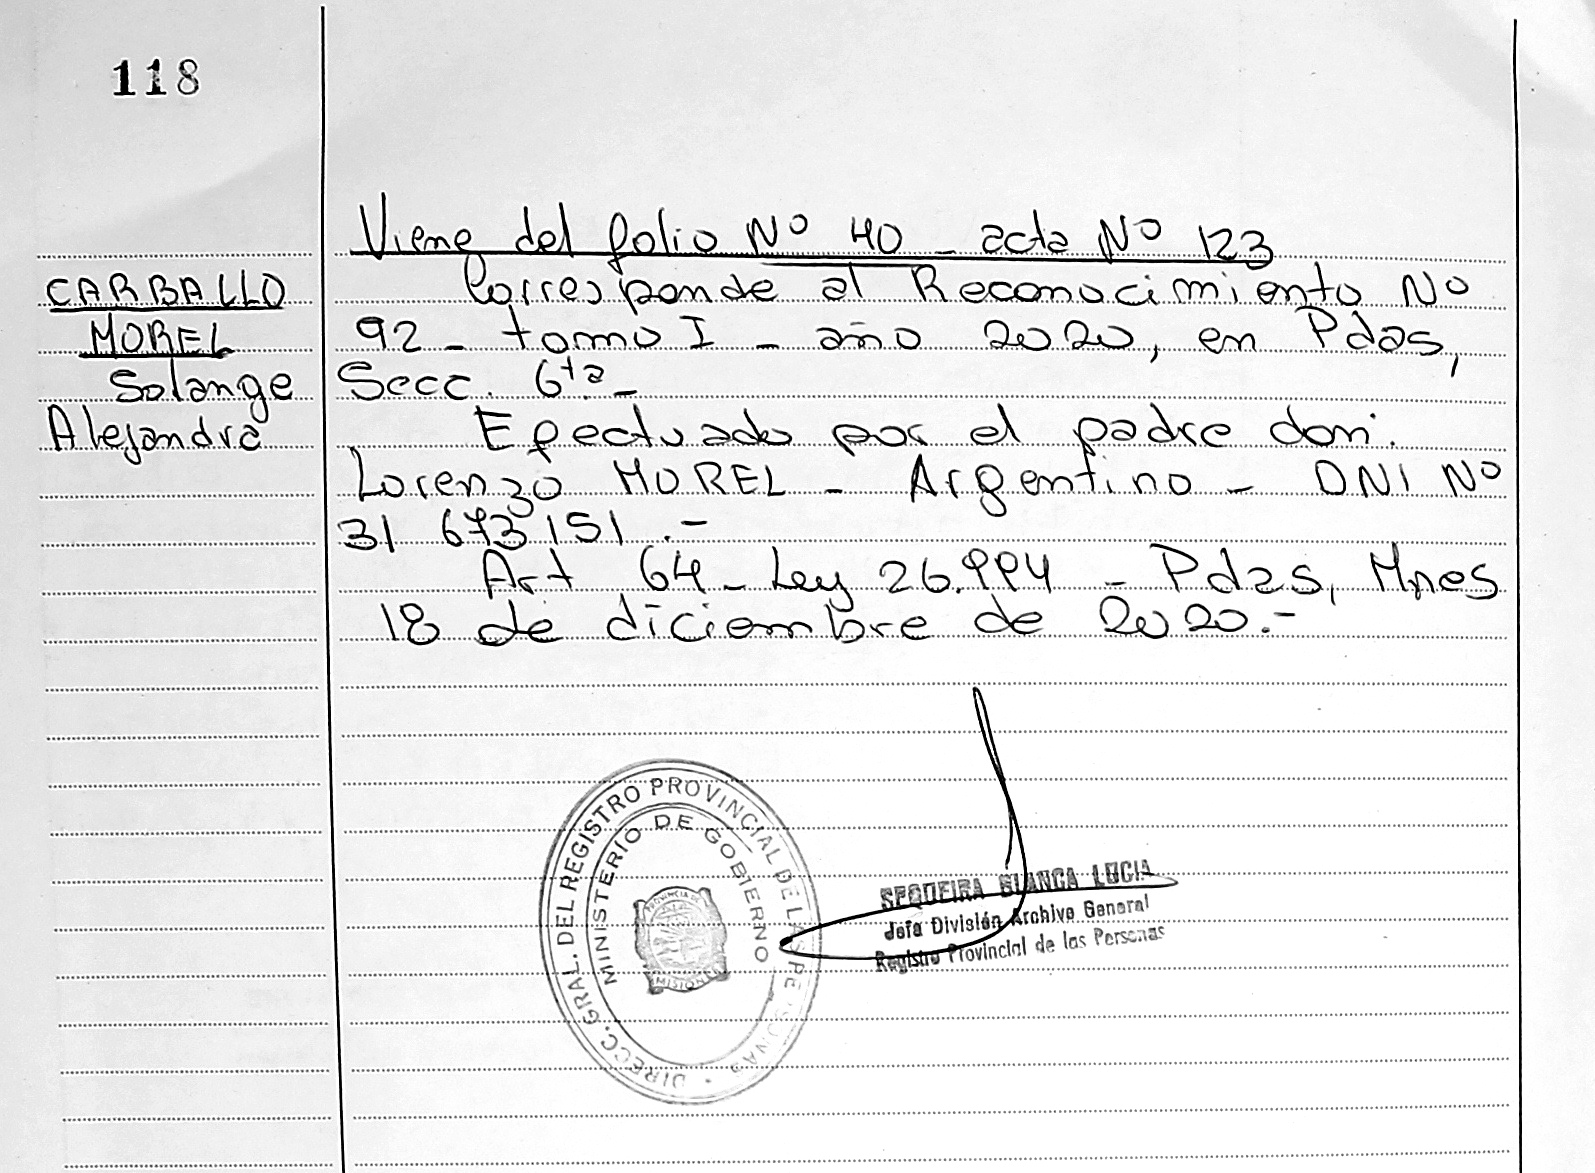 118
Viene del folio Nº 40 - acta Nº 123
CARBALLO
MOREL
Solange
Alejandra
Corresponde al Reconocimiento Nº
92 - tomo I - año 2020, en Pdas,
Secc. 6ta -
Efectuado por el padre don.
Lorenzo MOREL - Argentino - DNI Nº
31 673 151 .-
Art 64 - Ley 26.994 - Pdas, Mnes
18 de diciembre de 2020.-
DIRECC. GRAL. DEL REGISTRO PROVINCIAL DE LAS PERSONAS
MINISTERIO DE GOBIERNO
PROVINCIA DE
MISIONES
SEQUEIRA BLANCA LUCIA
Jefa División Archivo General
Registro Provincial de las Personas